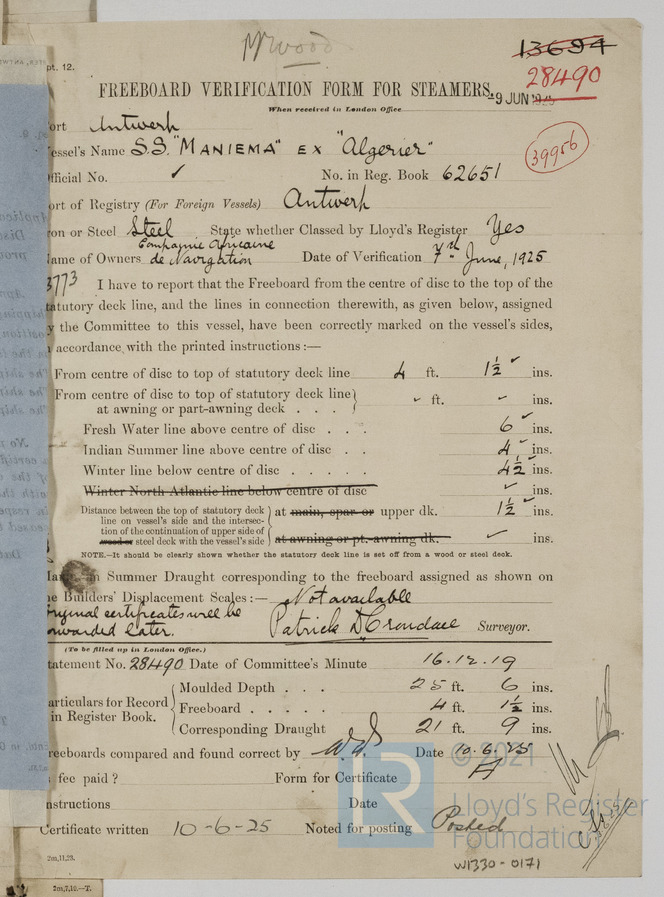 13694
28490
pt. 12.
FREEBOARD VERIFICATION FORM FOR STEAMERS.
-9 JUN 1925
When received in London Office
ort Antwerp
39956
essel's Name S.S. "MANIEMA" EX "Algerier"
fficial No. ✓ No. in Reg. Book 62651
ort of Registry (For Foreign Vessels) Antwerp
ron or Steel Steel State whether Classed by Lloyd's Register Yes
Compagnie Africaine
ame of Owners de Navigation Date of Verification 7th June, 1925
3773 I have to report that the Freeboard from the centre of disc to the top of the
tatutory deck line, and the lines in connection therewith, as given below, assigned
y the Committee to this vessel, have been correctly marked on the vessel's sides,
accordance with the printed instructions :—
From centre of disc to top of statutory deck line 4 ft. 1½ ins.
From centre of disc to top of statutory deck line
at awning or part-awning deck . . . - ft. - ins.
Fresh Water line above centre of disc . . . 6 ins.
Indian Summer line above centre of disc . . 4 ins.
Winter line below centre of disc . . . . . 4½ ins.
Winter North Atlantic line below centre of disc ✓ ins.
Distance between the top of statutory deck
line on vessel's side and the intersec-
tion of the continuation of upper side of
wood or steel deck with the vessel's side
at main, spar or upper dk. 1½ ins.
at awning or pt.-awning dk. ✓ ins.
NOTE.—It should be clearly shown whether the statutory deck line is set off from a wood or steel deck.
in Summer Draught corresponding to the freeboard assigned as shown on
he Builders' Displacement Scales :— Not available
riginal certificates will be
orwarded later.
Patrick D Crondace Surveyor.
(To be filled up in London Office.)
tatement No. 28490 Date of Committee's Minute 16.12.19
articulars for Record
in Register Book.
Moulded Depth . . . 25 ft. 6 ins.
Freeboard . . . . . 4 ft. 1½ ins.
Corresponding Draught 21 ft. 9 ins.
reeboards compared and found correct by Date 10.6.25
fee paid ? Form for Certificate A
nstructions Date
Certificate written 10-6-25 Noted for posting Posted
© 2021
LR
Lloyd's Register
Foundation
W1330-0171
2m,11,23.
2m,7,19.—T.